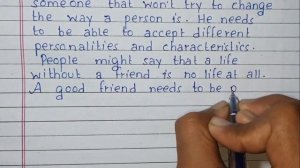 someone that won't try to change
the way a person is. He needs
to be able to accept different
personalities and characteristics.
People might say that a life
without a friend is no life at all.
A good friend needs to be